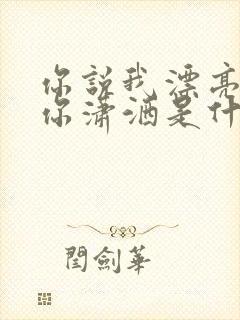 你說我漂亮
你瀟洒是什
閆劍華